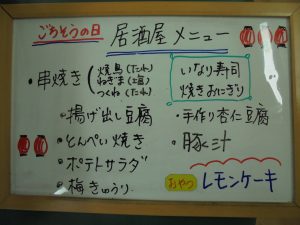 ごちそうの日 居酒屋メニュー
・串焼き(焼鳥(たれ)
ねぎま(塩)
つくね(たれ)
・揚げ出し豆腐
・とんぺい焼き
・ポテトサラダ
・梅きゅうり
いなり寿司
焼きおにぎり
・手作り杏仁豆腐
・豚汁
おやつ レモンケーキ